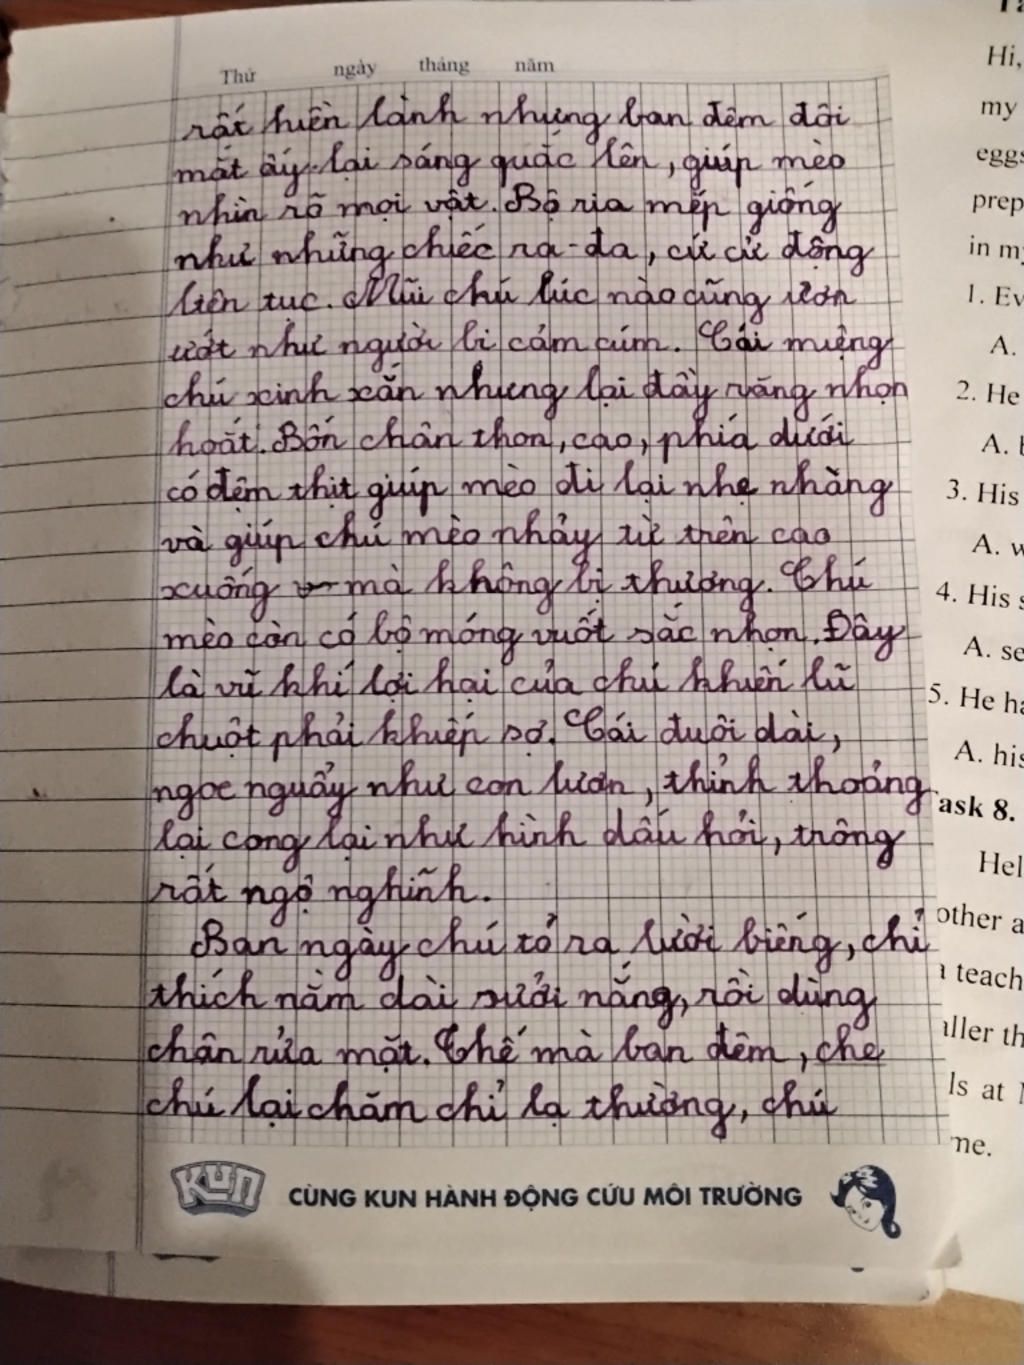 Thứ ngày tháng năm
rất hiền lành nhưng ban đêm đôi
mắt ấy lại sáng quắc lên, giúp mèo
nhìn rõ mọi vật. Bộ ria mép giống
như những chiếc ra-đa, cứ cử động
liên tục. Mũi chú lúc nào cũng ươn
ướt như người bị cảm cúm. Cái miệng
chú xinh xắn nhưng lại đầy răng nhọn
hoắt. Bốn chân thon, cao, phía dưới
có đệm thịt giúp mèo đi lại nhẹ nhàng
và giúp chú mèo nhảy từ trên cao
xuống mà không bị thương. Chú
mèo còn có bộ móng vuốt sắc nhọn. Đây
là vũ khí lợi hại của chú khiến lũ
chuột phải khiếp sợ. Cái đuôi dài,
ngoe nguẩy như con lươn, thỉnh thoảng
lại cong lại như hình dấu hỏi, trông
rất ngộ nghĩnh.
Ban ngày chú tỏ ra lười biếng, chỉ
thích nằm dài sưởi nắng, rồi dùng
chân rửa mặt. Thế mà ban đêm, che
chú lại chăm chỉ lạ thường, chú
KUN CÙNG KUN HÀNH ĐỘNG CỨU MÔI TRƯỜNG
Hi,
my
eggs
prep
in my
1. Ev
A.
2. He
A.
3. His
A. w
4. His s
A. se
5. He ha
A. his
ask 8.
Hel
other a
a teach
aller th
ls at
me.